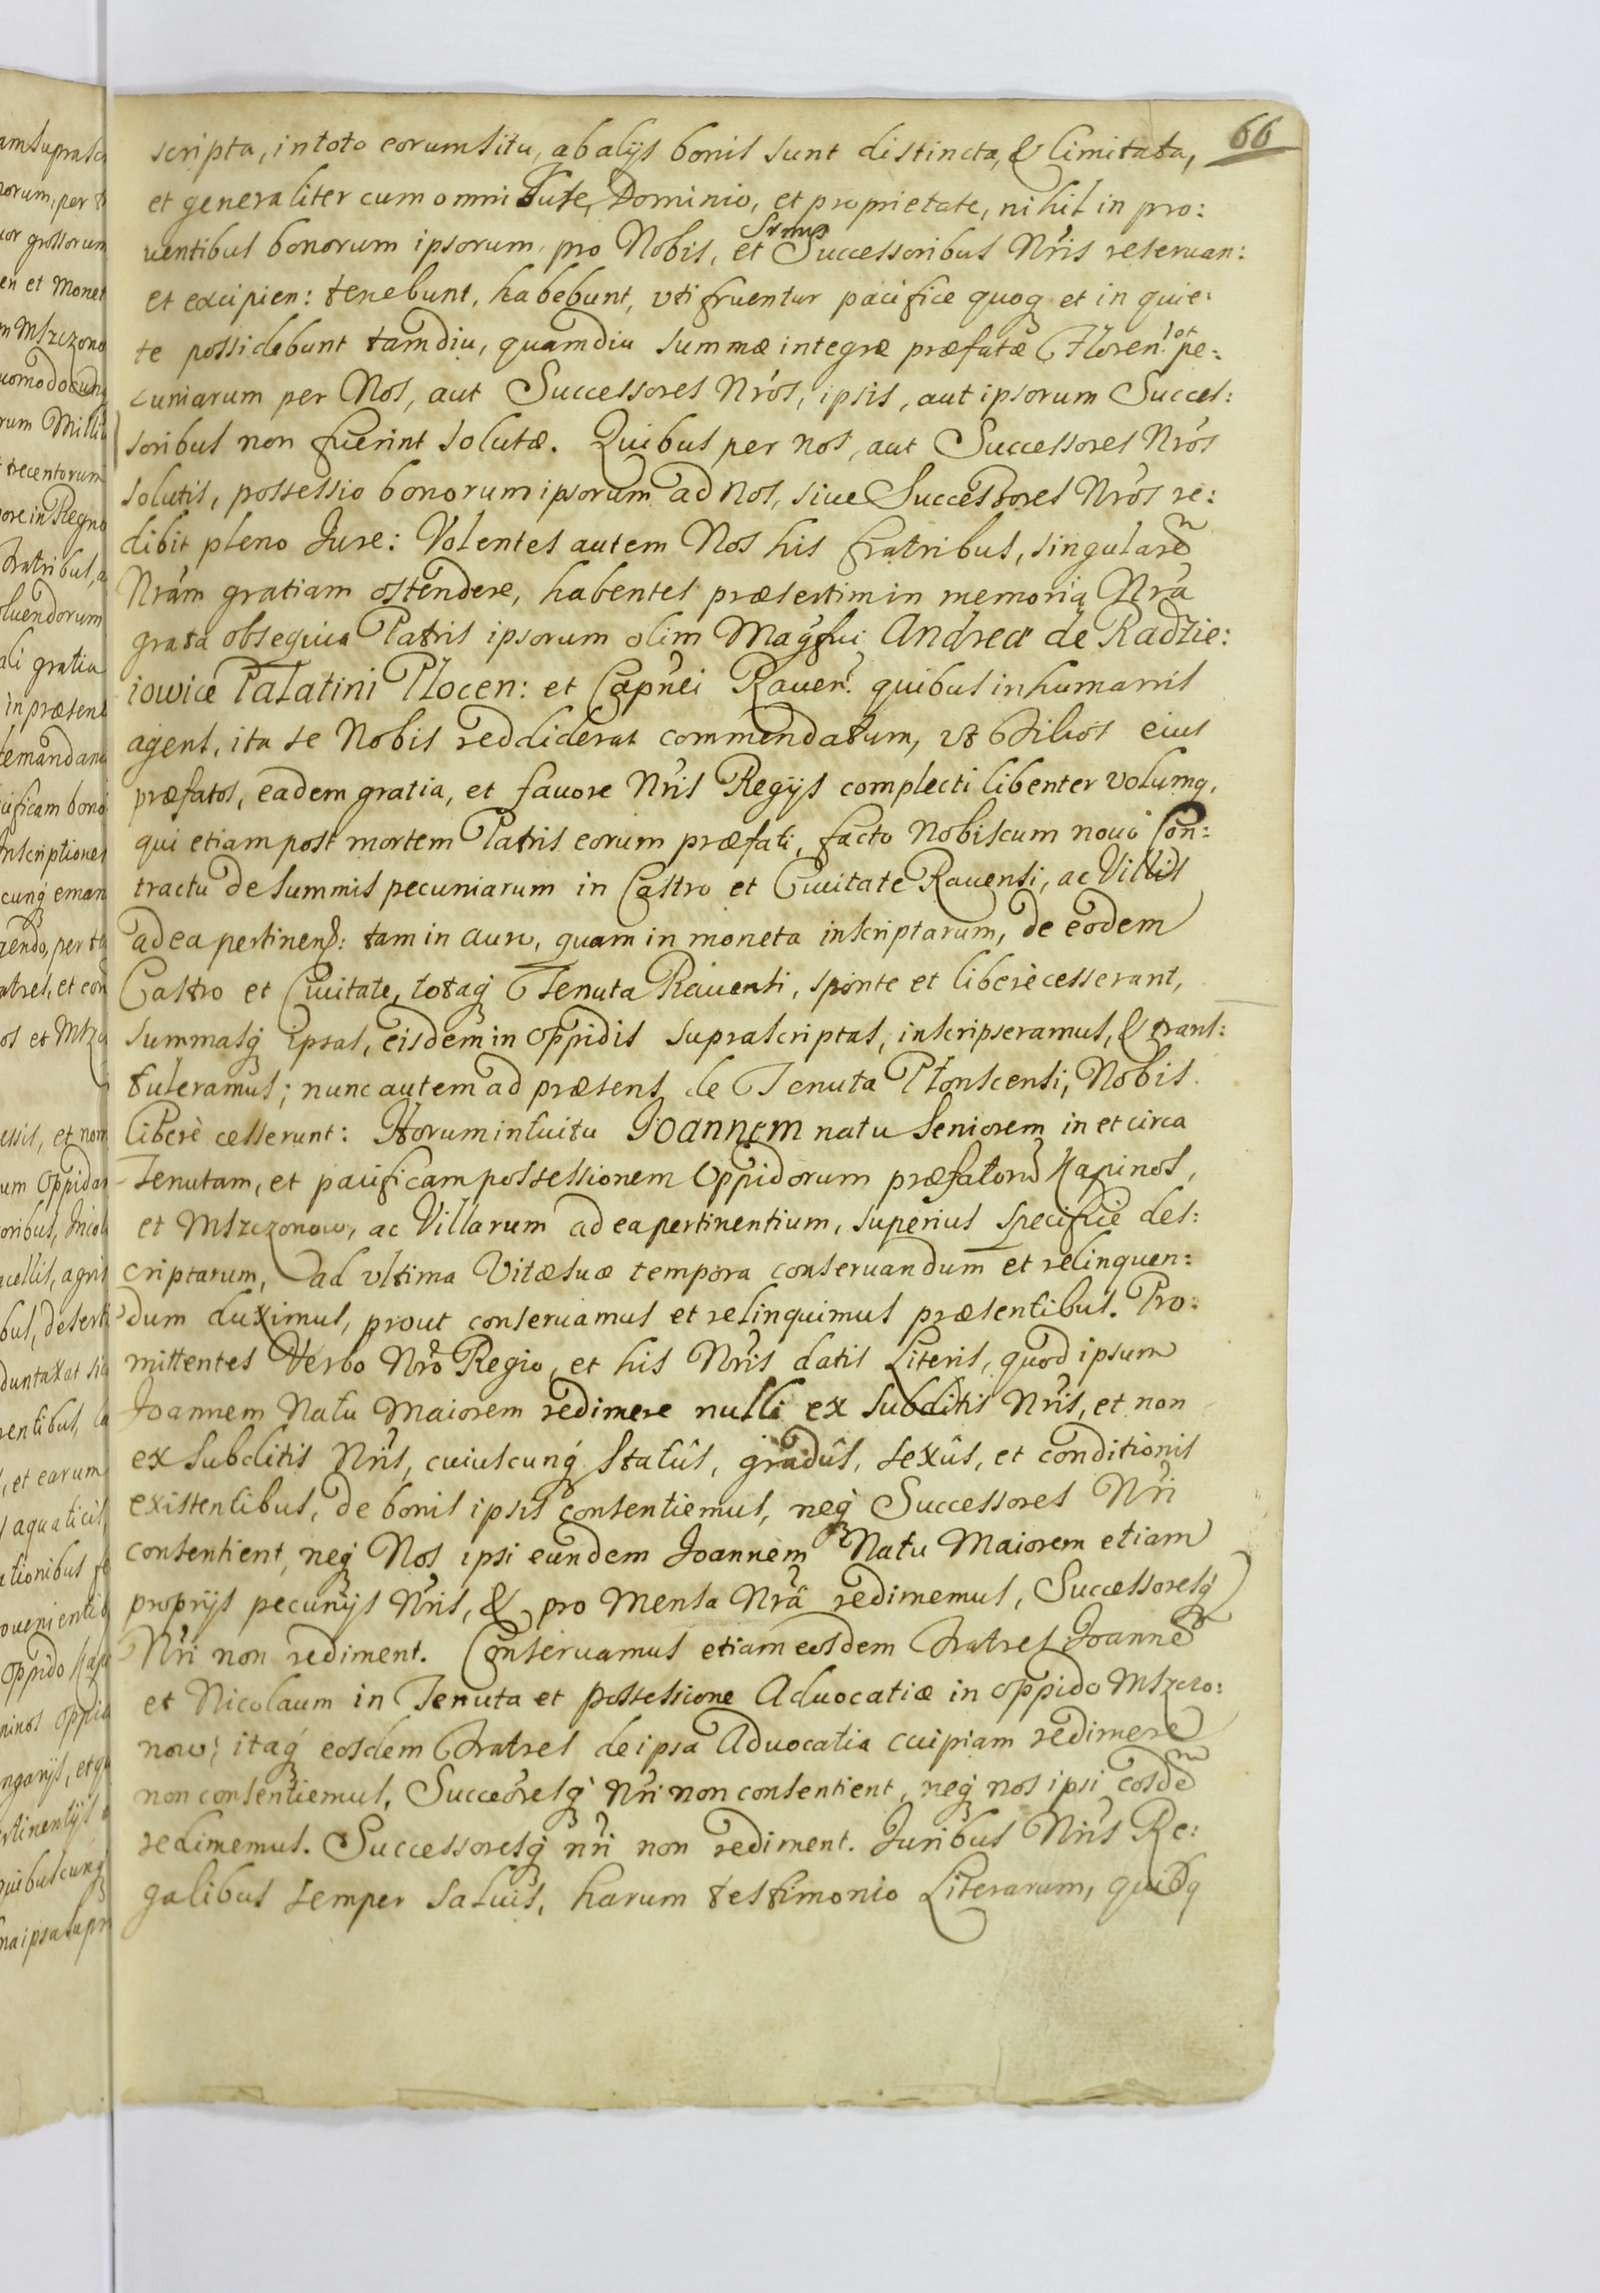 66
scripta, in toto eorum situ, ab alijs bonis sunt distincta, & limitata,
et generaliter cum omni Jure, Dominio, et proprietate, nihil in pro:
uentibus bonorum ipsorum pro Nobis, et Sermis Successoribus Nris reseruan:
et excipien: tenebunt, habebunt, vti fruentur pacifice quoq et in quie:
te possidebunt tamdiu, quamdiu summæ integræ præfatæ Floren: et pe:
cuniarum per Nos, aut Successores Nros, ipsis, aut ipsorum Succes:
soribus non fuerint solutæ. Quibus per nos, aut Successores Nros
solutis, possessio bonorum ipsorum ad Nos, siue Successores Nros re:
dibit pleno Jure: Volentes autem Nos his fratribus, singularem
Nram gratiam ostendere, habentes præsertim in memoria Nra
grata obsequia Patris ipsorum olim Magfici Andreæ de Radzie:
iowice Palatini Plocen: et Capnei Rauen: quibus in humanis
agens, ita se Nobis reddiderat commendatum, vt Filios eius
præfatos, eadem gratia, et fauore Nris Regijs complecti libenter volumq,
qui etiam post mortem Patris eorum præfati, facto Nobiscum nouo Con:
tractu de summis pecuniarum in Castro et Ciuitate Rauensi, ac Villis
ad ea pertinen: tam in auro, quam in moneta inscriptarum, de eodem
Castro et Ciuitate, totaq Tenuta Rauensi, sponte et liberè cesserant,
summasq ipsas, eisdem in oppidis suprascriptas, inscripseramus, & trans:
tuleramus; nunc autem ad præsens de Tenuta Płonscensi, Nobis
liberè cesserunt: Horum intuitu Joannem natu Seniorem in et circa
Tenutam, et pacificam possessionem Oppidorum præfatorum Kapinos,
et Mszczonow, ac Villarum ad ea pertinentium, superius specifice des:
criptarum, ad vltima Vitæ suæ tempora conseruandum et relinquen:
dum duximus, prout conseruamus et relinquimus præsentibus. Pro:
mittentes Verbo Nro Regio, et his Nris datis Literis, quod ipsum
Joannem Natu Maiorem redimere nulli ex subditis Nris, et non
ex subditis Nris, cuiuscunq Statûs, gradûs, sexûs, et conditionis
existentibus, de bonis ipsis consentiemus, neq Successores Nri
consentient, neq Nos ipsi eundem Joannem Natu Maiorem etiam
proprijs pecunijs Nris, & pro Mensa Nrâ redimemus, Successoresq
Nri non rediment. Conseruamus etiam eosdem Fratres Joannem
et Nicolaum in Tenuta et possessione Aduocatiæ in oppido Mszczo:
now; itaq eosdem Fratres de ipsa Aduocatia cuipiam redimere
non consentiemus, Succeoresq Nri non consentient, neq nos ipsi eosdem
redimemus. Successoresq nri non rediment. Juribus Nris Re:
galibus semper saluis, harum testimonio Literarum, quibq